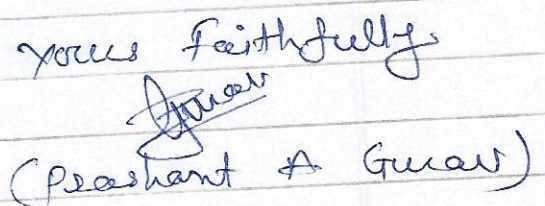 Yours Faithfully.
(Prashant A Gurav)